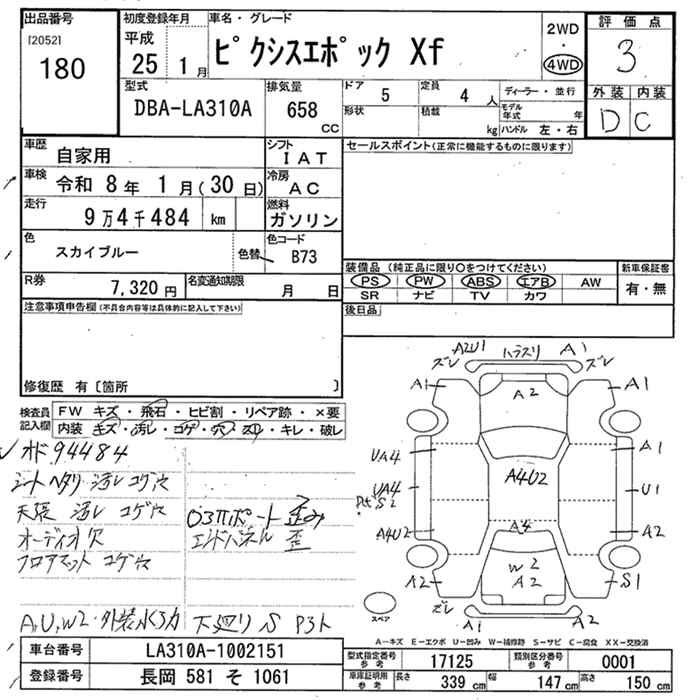 出品番号
[2052]
180
初度登録年月
平成
25 1月
車名・グレード
ピクシスエポック Xf
2WD
・
4WD
評価点
3
外装 内装
D C
型式
DBA-LA310A
排気量
658
cc
ドア 5
形状
定員 4 人
積載 kg
ディーラー・並行
モデル年式 年
ハンドル 左・右
車歴
自家用
シフト
IAT
車検 令和 8年 1月(30日)
冷房
AC
走行
9万4千484 km
燃料
ガソリン
色
スカイブルー
色替
色コード
B73
R券
7,320円
名変通知期限
月 日
セールスポイント(正常に機能するものに限ります)
装備品 (純正品に限り○をつけてください)
PS PW ABS エアB AW
SR ナビ TV カワ
新車保証書
有・無
後日品
注意事項申告欄(不具合内容等は具体的に記入して下さい)
修復歴 有〔箇所 〕
検査員記入欄
FW キズ・飛石・ヒビ割・リペア跡・×要
内装 キズ・汚レ・コゲ・穴・スレ・キレ・破レ
オド 94484
シートヘタリ 汚レ コゲ穴
天張 汚レ コゲ穴
オーディオ欠
フロアマット コゲ穴
エンドパネル 歪
A,U,W2・外装水アカ 下廻りS P3ト
A2U1 ハラスリ A1
ズレ ズレ
A1 A2 A1
UA4 A1
UA4 A4U2 U1
S2
A4U2 A4 A2
A2 W2 A2 S1
ズレ
A1 A2
スペア
A-キズ E-エクボ U-凹み W-補修跡 S-サビ C-腐食 XX-交換済
車台番号 LA310A-1002151
登録番号 長岡 581 そ 1061
型式指定番号参考 17125
類別区分番号参考 0001
車庫証明用参考 長さ 339 cm 幅 147 cm 高さ 150 cm